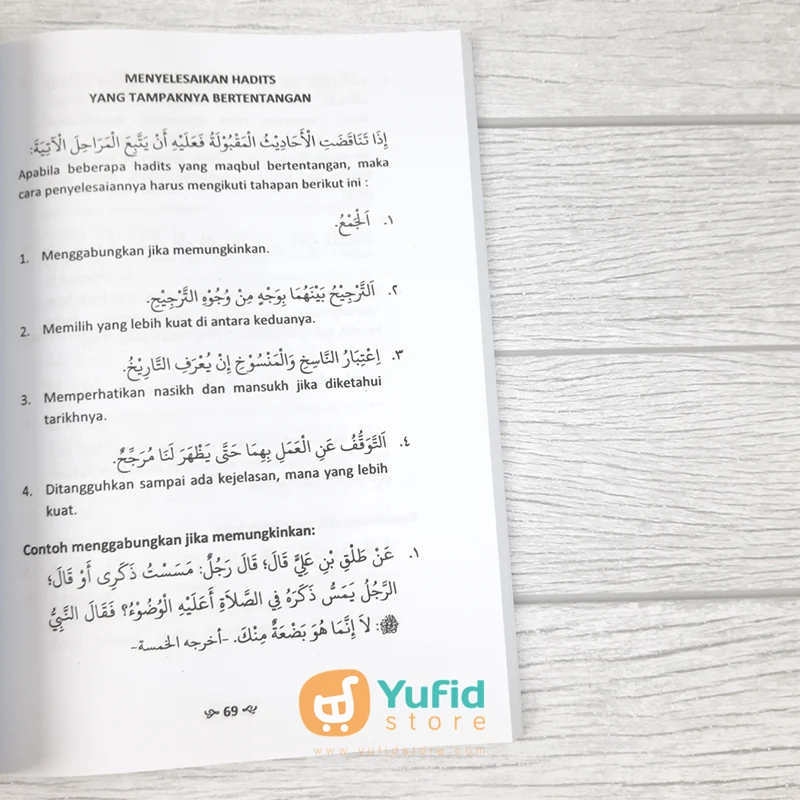 MENYELESAIKAN HADITS
YANG TAMPAKNYA BERTENTANGAN
إِذَا تَنَاقَضَتِ الْأَحَادِيْثُ الْمَقْبُوْلَةُ فَعَلَيْهِ أَنْ يَتَّبِعَ الْمَرَاحِلَ الْآتِيَةَ:
Apabila beberapa hadits yang maqbul bertentangan, maka
cara penyelesaiannya harus mengikuti tahapan berikut ini :
١. اَلْجَمْعُ.
1. Menggabungkan jika memungkinkan.
٢. اَلتَّرْجِيْحُ بَيْنَهُمَا بِوَجْهٍ مِنْ وُجُوْهِ التَّرْجِيْحِ.
2. Memilih yang lebih kuat di antara keduanya.
٣. اِعْتِبَارُ النَّاسِخِ وَالْمَنْسُوْخِ إِنْ يُعْرَفِ التَّارِيْخُ.
3. Memperhatikan nasikh dan mansukh jika diketahui
tarikhnya.
٤. اَلتَّوَقُّفُ عَنِ الْعَمَلِ بِهِمَا حَتَّى يَظْهَرَ لَنَا مُرَجِّحٌ.
4. Ditangguhkan sampai ada kejelasan, mana yang lebih
kuat.
Contoh menggabungkan jika memungkinkan:
١. عَنْ طَلْقِ بْنِ عَلِيٍّ قَالَ؛ قَالَ رَجُلٌ: مَسَسْتُ ذَكَرِى أَوْ قَالَ؛
الرَّجُلُ يَمَسُّ ذَكَرَهُ فِي الصَّلَاةِ أَعَلَيْهِ الْوُضُوْءُ؟ فَقَالَ النَّبِيُّ
ﷺ: لاَ إِنَّمَا هُوَ بَضْعَةٌ مِنْكَ. -أخرجه الخمسة-
69
Yufid
store
www.yufidstore.com